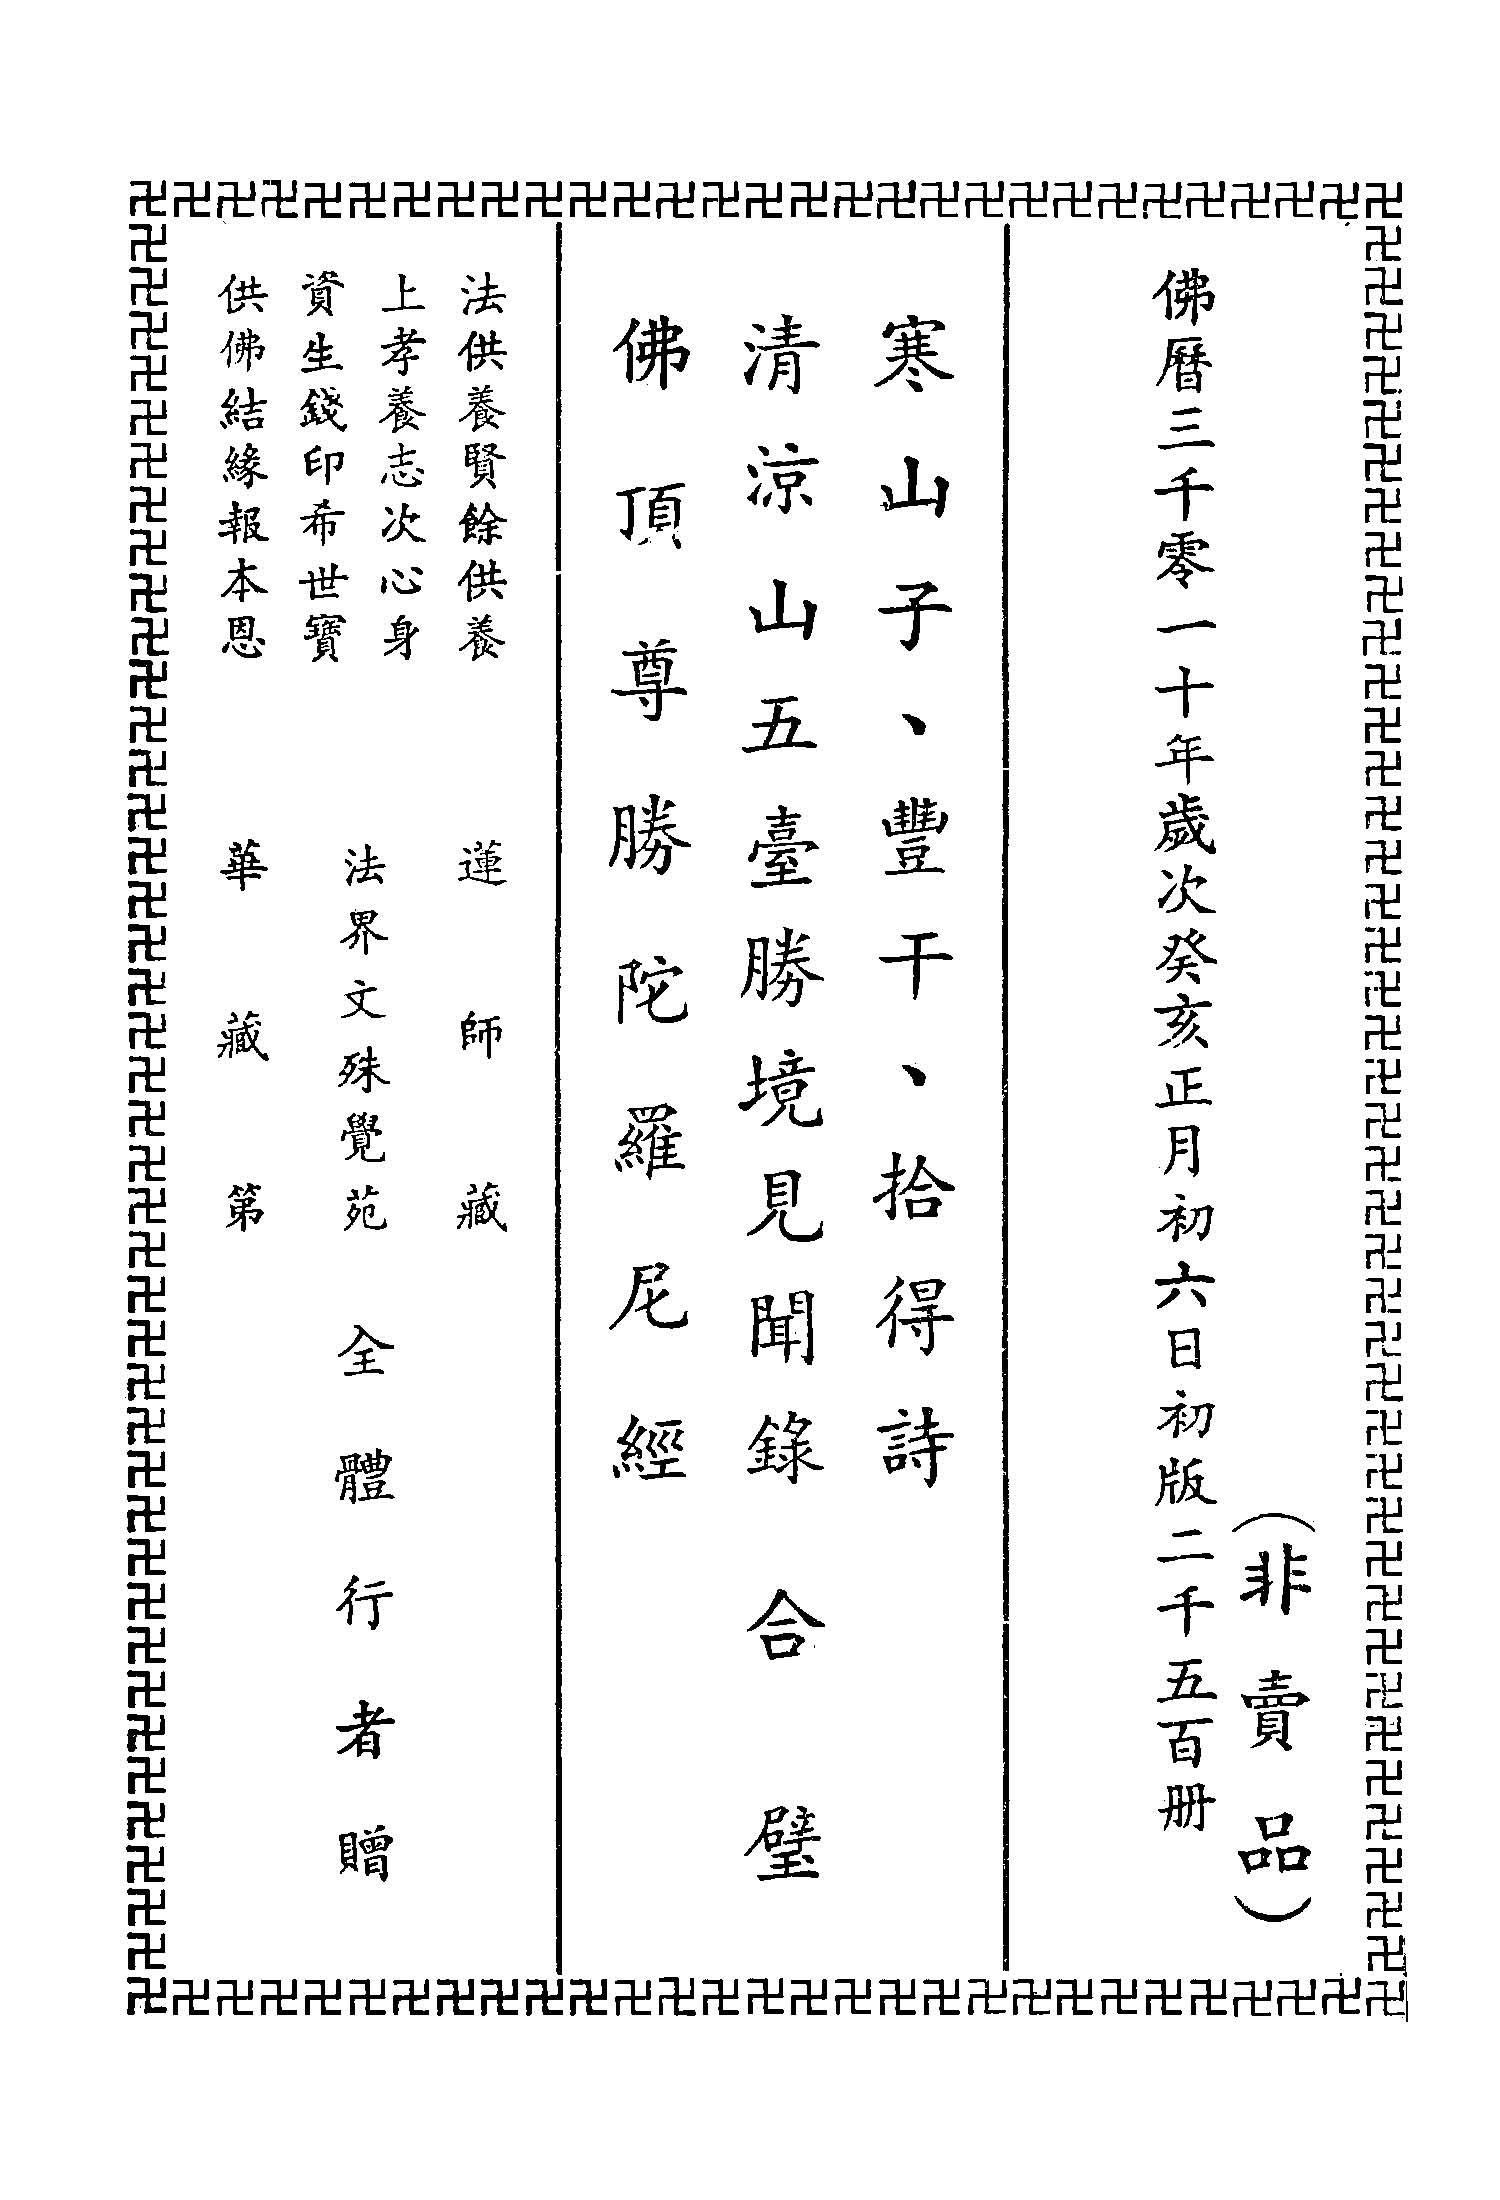 (非賣品)
佛曆三千零一十年歲次癸亥正月初六日初版二千五百册
寒山子、豐干、拾得詩
清涼山五臺勝境見聞錄
佛頂尊勝陀羅尼經
合璧
法供養賢餘供養
上孝養志次心身
資生錢印希世寶
供佛結緣報本恩
蓮師藏
法界文殊覺苑
華藏第
全體行者贈